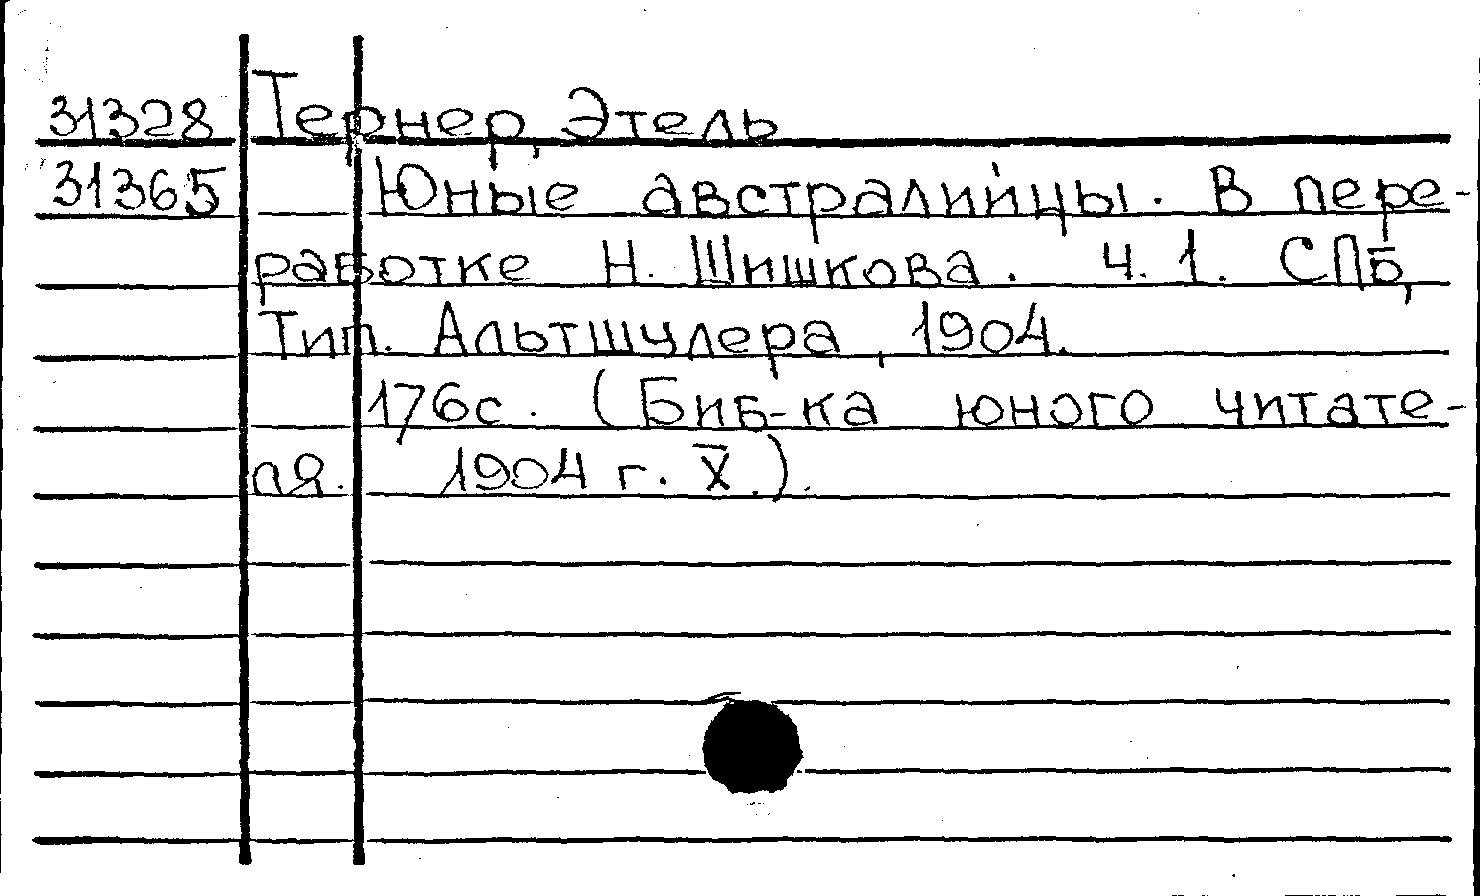 31328 Тернер, Этель
31365 Юные австралийцы. В пере-
работке Н. Шишкова. Ч. 1. СПб,
Тип. Альтшулера, 1904.
176с. (Биб-ка юного читате-
ля. 1904 г. X.).